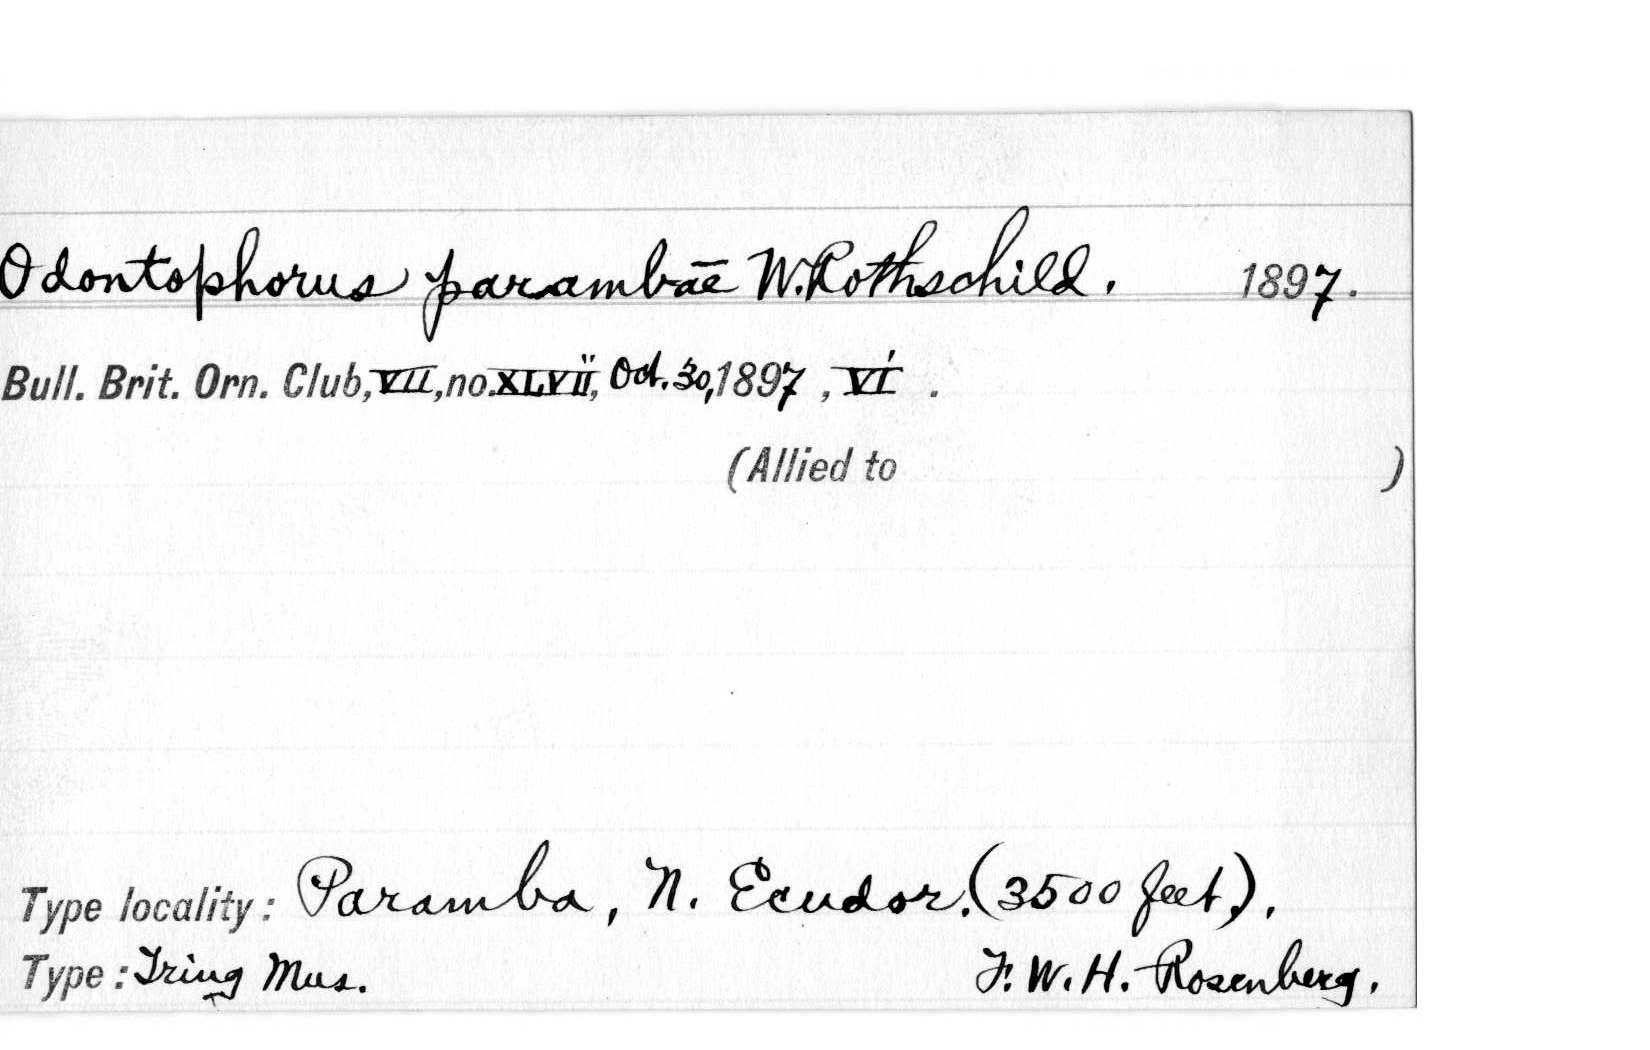 Odontophorus parambae W. Rothschild. 1897.
Bull. Brit. Orn. Club, VII, no. XLVII, Oct. 30, 1897, VI.
(Allied to )
Type locality: Paramba, N. Ecudor. (3500 feet).
Type: Tring Mus. F. W. H. Rosenberg.